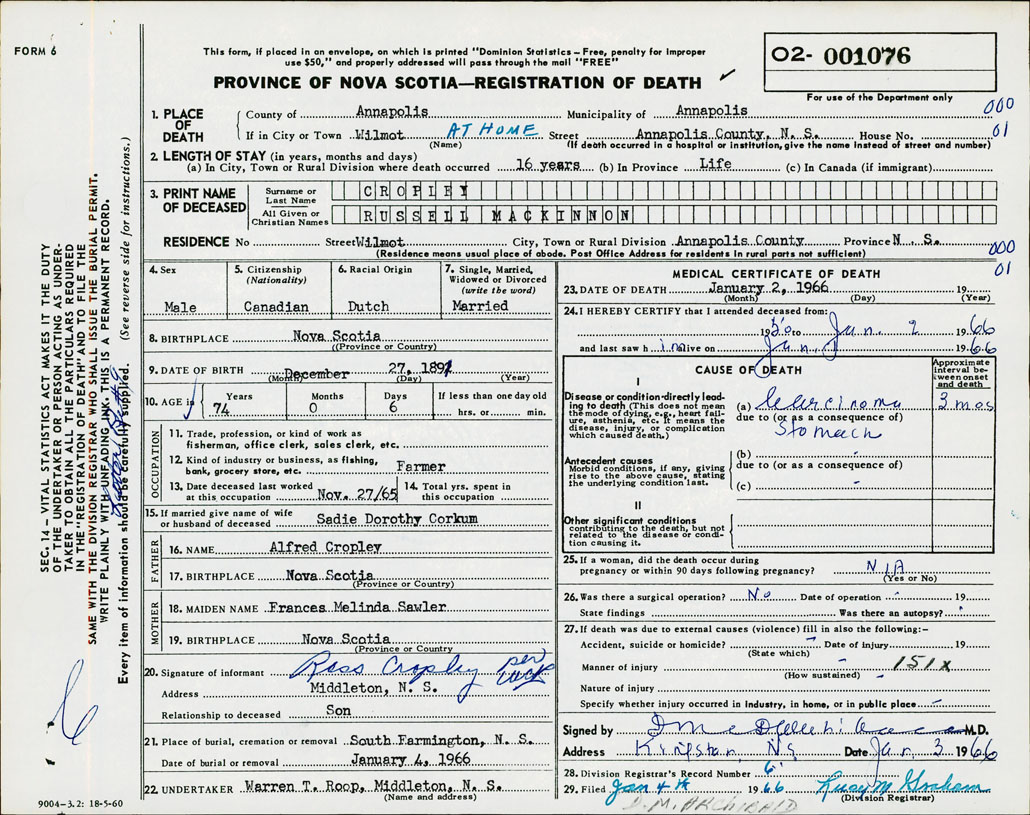 FORM 6
This form, if placed in an envelope, on which is printed "Dominion Statistics – Free, penalty for improper
use $50," and properly addressed will pass through the mail "FREE"
PROVINCE OF NOVA SCOTIA—REGISTRATION OF DEATH ✓
02- 001076
For use of the Department only
000
01
1. PLACE OF DEATH
County of Annapolis Municipality of Annapolis
If in City or Town Wilmot AT HOME Street Annapolis County, N. S. House No.
(Name) (If death occurred in a hospital or institution, give the name instead of street and number)
2. LENGTH OF STAY (in years, months and days)
(a) In City, Town or Rural Division where death occurred 16 years (b) In Province Life (c) In Canada (if immigrant)
3. PRINT NAME OF DECEASED
Surname or Last Name CROPLEY
All Given or Christian Names RUSSELL MACKINNON
RESIDENCE No Street Wilmot City, Town or Rural Division Annapolis County Province N. S.
(Residence means usual place of abode. Post Office Address for residents in rural parts not sufficient)
000
01
4. Sex
Male
5. Citizenship
(Nationality)
Canadian
6. Racial Origin
Dutch
7. Single, Married,
Widowed or Divorced
(write the word)
Married
8. BIRTHPLACE Nova Scotia
(Province or Country)
9. DATE OF BIRTH December 27, 1891
(Month) (Day) (Year)
10. AGE in
Years Months Days If less than one day old
74 0 6 hrs. or min.
OCCUPATION
11. Trade, profession, or kind of work as
fisherman, office clerk, sales clerk, etc.
12. Kind of industry or business, as fishing,
bank, grocery store, etc. Farmer
13. Date deceased last worked
at this occupation Nov. 27/65
14. Total yrs. spent in
this occupation
15. If married give name of wife
or husband of deceased Sadie Dorothy Corkum
FATHER
16. NAME Alfred Cropley
17. BIRTHPLACE Nova Scotia
(Province or Country)
MOTHER
18. MAIDEN NAME Frances Melinda Sawler
19. BIRTHPLACE Nova Scotia
(Province or Country)
20. Signature of informant Ross Cropley per
Address Middleton, N. S.
Relationship to deceased Son
21. Place of burial, cremation or removal South Farmington, N. S.
Date of burial or removal January 4, 1966
22. UNDERTAKER Warren T. Roop, Middleton, N. S.
(Name and address)
MEDICAL CERTIFICATE OF DEATH
23. DATE OF DEATH January 2, 1966 19
(Month) (Day) (Year)
24. I HEREBY CERTIFY that I attended deceased from:
1950 to Jan. 2 1966
and last saw h im alive on Jan. 1966
CAUSE OF DEATH
Approximate
interval be-
tween onset
and death
I
Disease or condition directly lead-
ing to death (This does not mean
the mode of dying, e.g., heart fail-
ure, asthenia, etc. It means the
disease, injury, or complication
which caused death.)
(a) Carcinoma 3 mos
due to (or as a consequence of)
Stomach
Antecedent causes
Morbid conditions, if any, giving
rise to the above cause, stating
the underlying condition last.
(b) -
due to (or as a consequence of)
(c) -
II
Other significant conditions
contributing to the death, but not
related to the disease or condi-
tion causing it.
25. If a woman, did the death occur during
pregnancy or within 90 days following pregnancy? N/A
(Yes or No)
26. Was there a surgical operation? No Date of operation - 19
State findings Was there an autopsy? -
27. If death was due to external causes (violence) fill in also the following:–
Accident, suicide or homicide? - Date of injury 19
(State which)
Manner of injury - 151X
(How sustained) -
Nature of injury
Specify whether injury occurred in industry, in home, or in public place -
Signed by M.D.
Address Kingston NS Date Jan 3 1966
28. Division Registrar's Record Number 6
29. Filed Jan 4th 1966 Graham
(Division Registrar)
D.M. ARCHIBALD
SEC. 14 – VITAL STATISTICS ACT MAKES IT THE DUTY
OF THE UNDERTAKER OR PERSON ACTING AS UNDER-
TAKER TO OBTAIN ALL THE PARTICULARS REQUIRED
IN THE "REGISTRATION OF DEATH" AND TO FILE THE
SAME WITH THE DIVISION REGISTRAR WHO SHALL ISSUE THE BURIAL PERMIT.
WRITE PLAINLY WITH UNFADING INK. THIS IS A PERMANENT RECORD.
Every item of information should be carefully supplied. (See reverse side for instructions.)
9004–3.2: 18-5-60